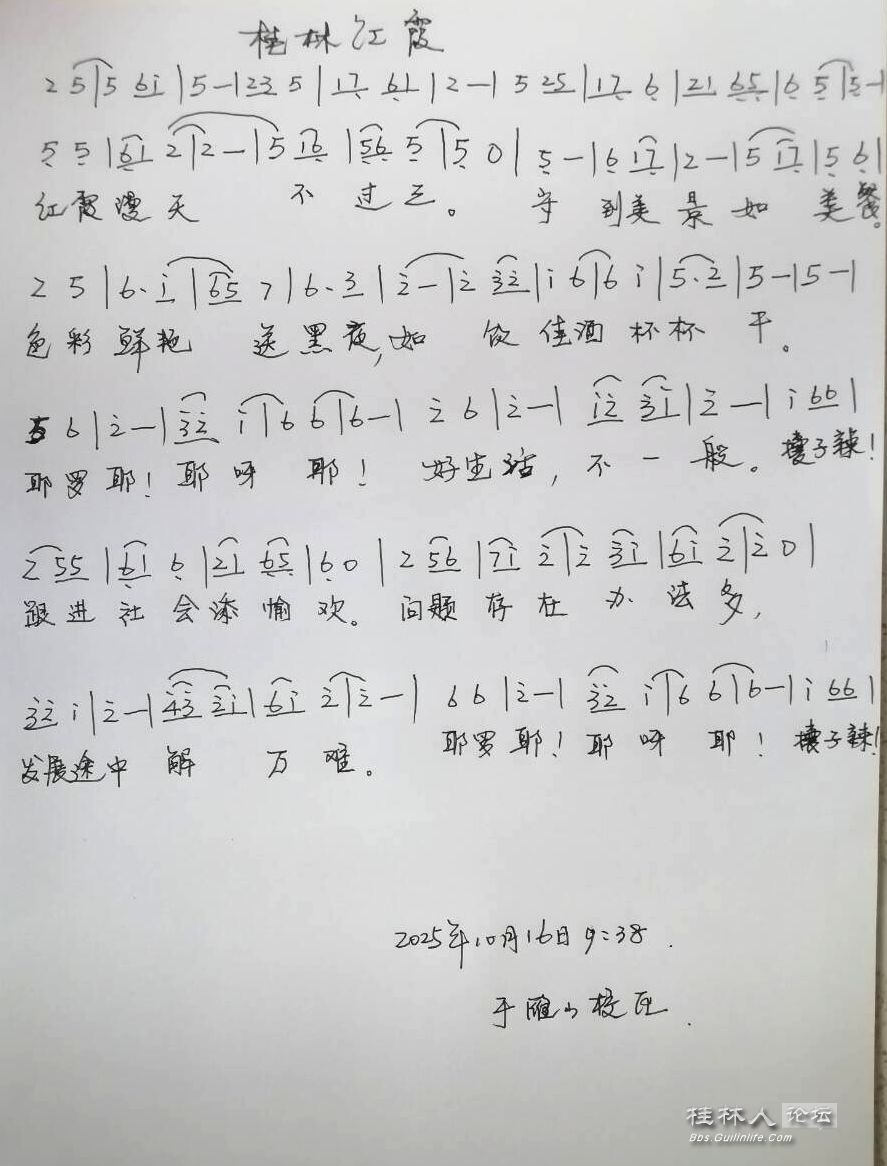 桂林红霞
2 5|5 6i|5-|23 5|17 61|2-|5 25|17 6|21 65|6 5|5-|
5 5|61 2|2-|5 16|56 5|5 0|5-|6 17|2-|5 17|5 6|
红霞漫天 不过三。 守到美景如美餐。
2 5|6. i|65 7|6. 3|2-|2 32|i 6|6 i|5. 2|5-|5-|
色彩鲜艳 送黑夜,如饮佳酒杯杯干。
5 6|2-|32 i|6 6|6-|2 6|2-|i2 3i|2-|i 66|
耶罗耶!耶呀耶! 好生活,不一般。 子辣!
2 55|61 6|21 65|6 0|2 56|7i 2|2 3i|6i 2|2 0|
跟进社会添愉欢。问题存在办法多,
32 i|2-|43 2i|6i 2|2-|6 6|2-|32 i|6 6|6-|i 66|
发展途中解万难。 耶罗耶!耶呀耶! 子辣!
2025年10月16日9:38.
于雁山校区.
桂林人论坛
Bbs.Guilinlife.com